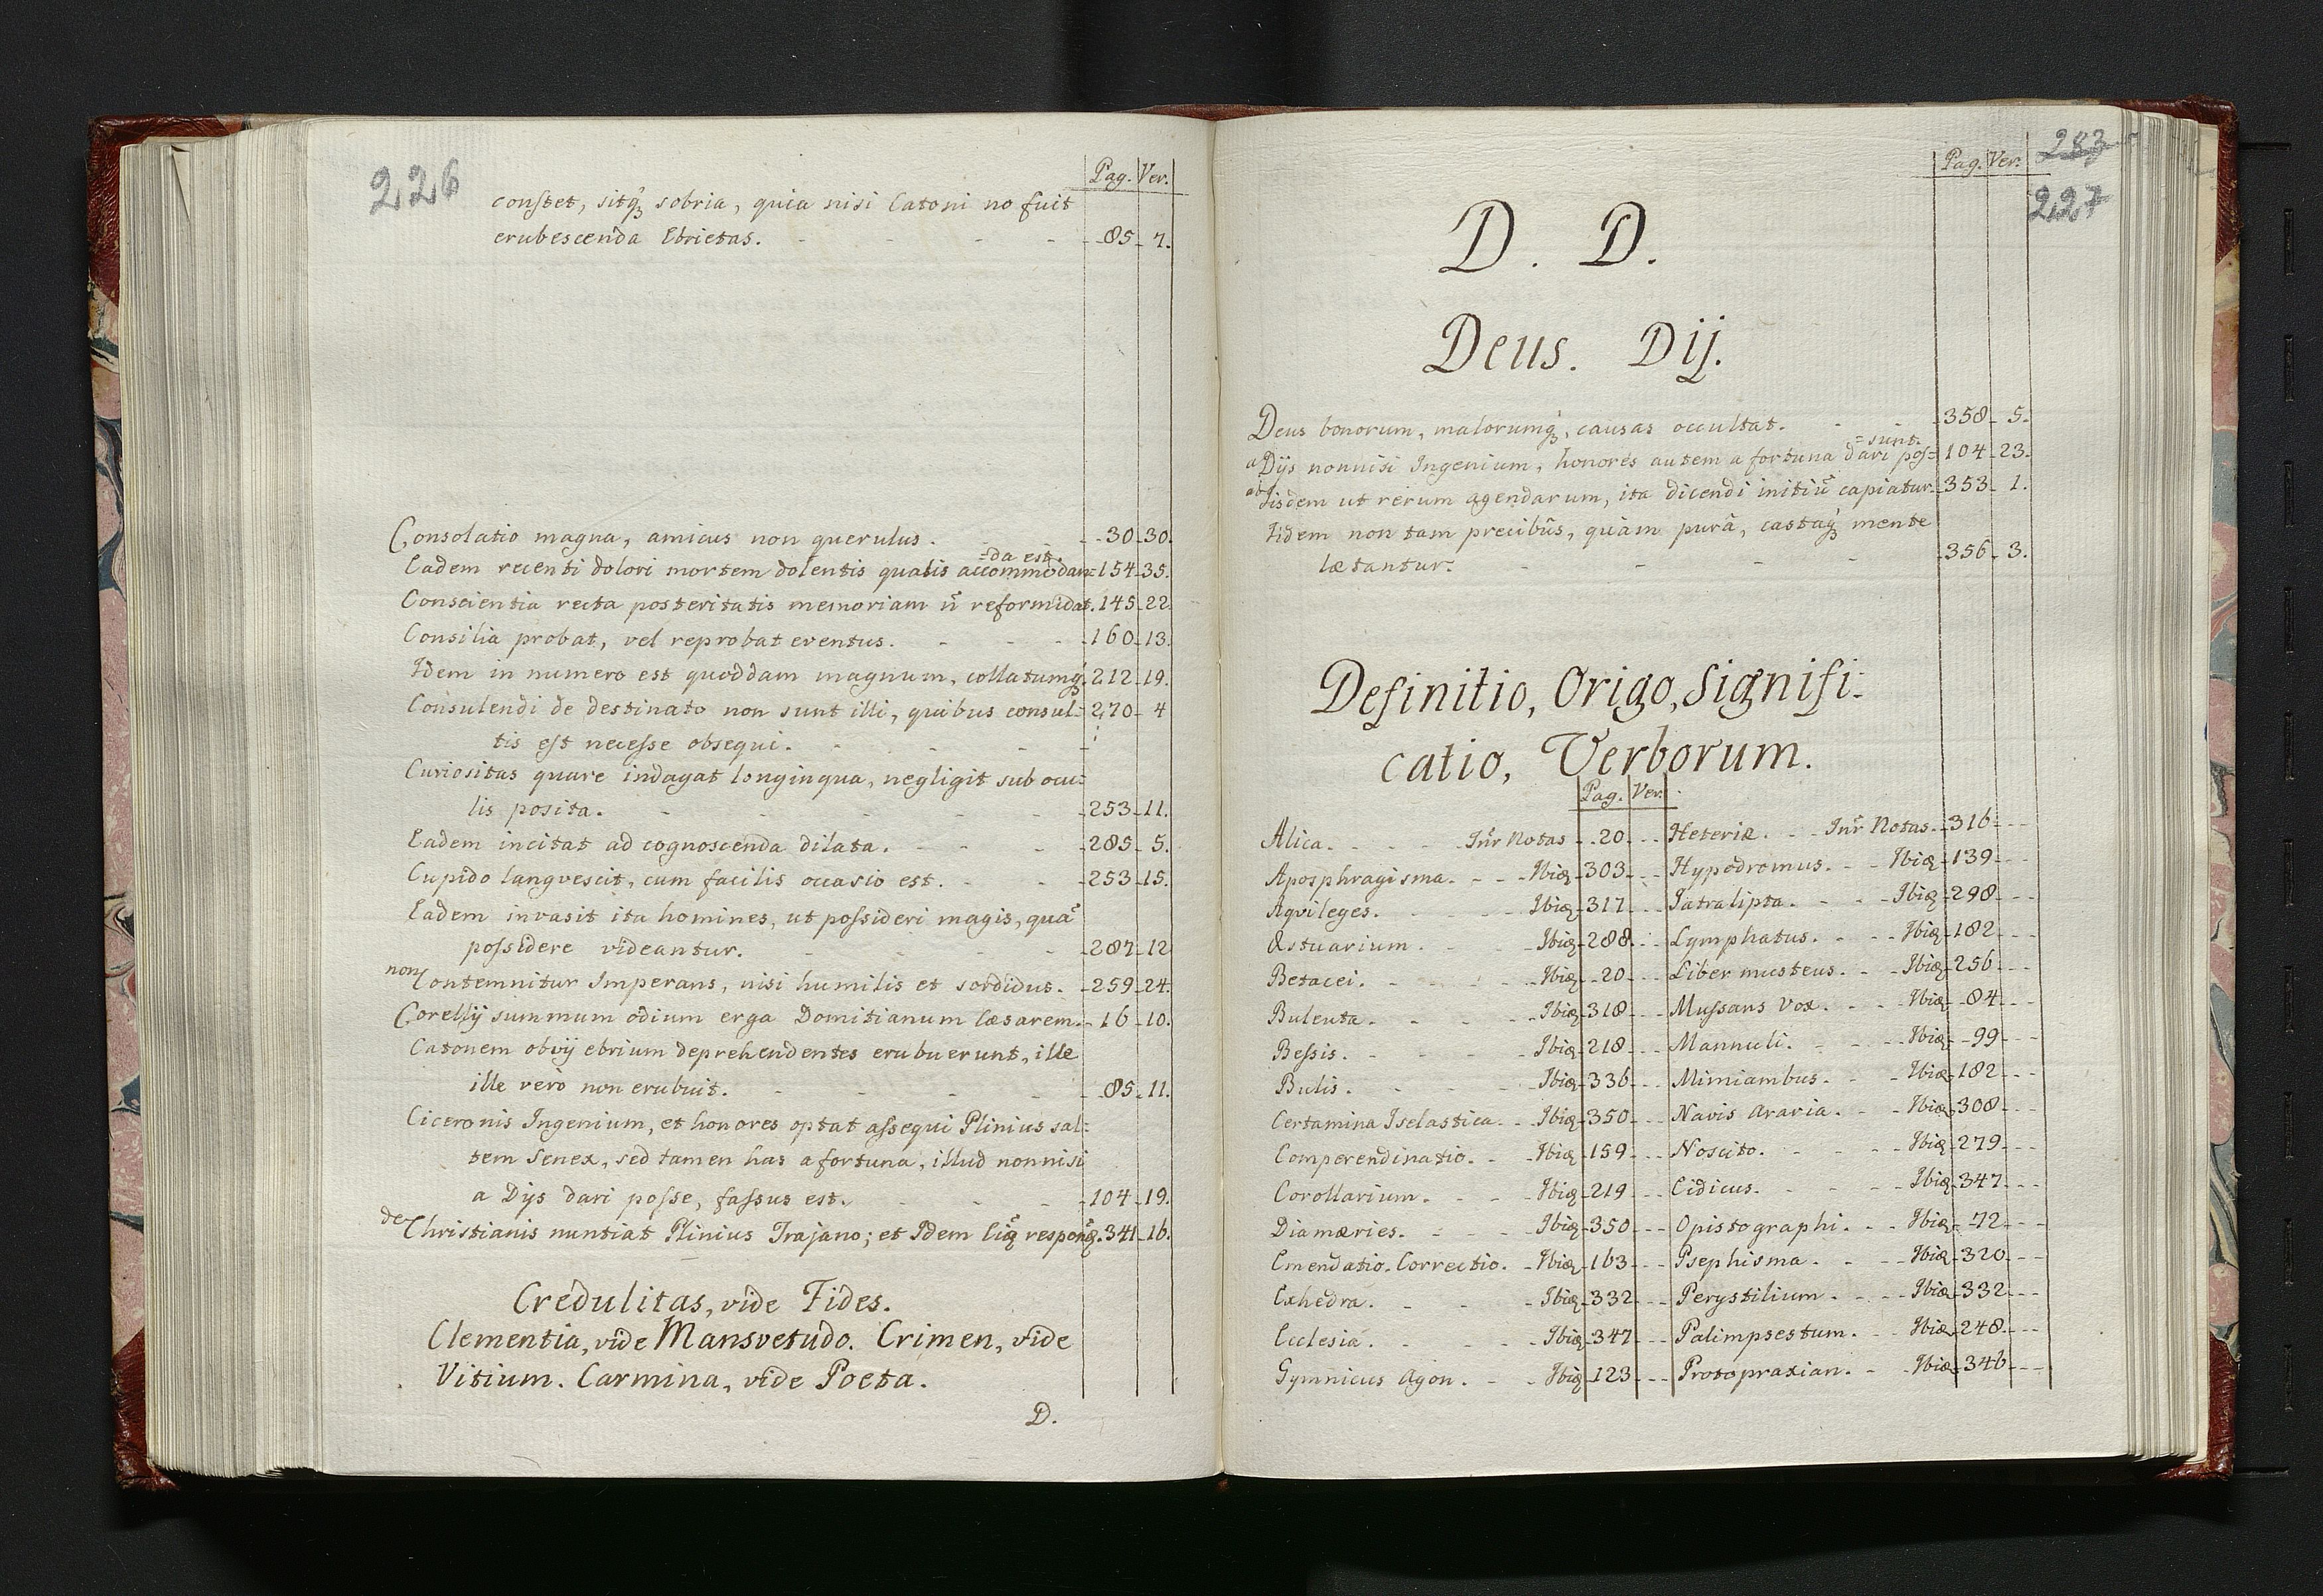 226
Pag. Ver.
constet, sitq́ꝫ sobria, quia nisi Catoni no fuit
erubescenda Ebrietas. - - - - 85. 7.
Consolatio magna, amicus non querulus. - - 30. 30.
=da est.
Eadem recenti dolori mortem dolentis qualis accommodan= 154. 35.
Conscientia recta posteritatis memoriam n̄ reformidat. 145. 22
Consilia probat, vel reprobat eventus. - - - 160. 13.
Idem in numero est quoddam magnum, collatumq́ꝫ. 212. 19.
Consulendi de destinato non sunt illi, quibus consul= 270. 4
tis est necesse obsequi. - - - -
Curiositas quare indagat longinqua, negligit sub ocu=
lis posita. - - - - - 253. 11.
Eadem incitat ad cognoscenda dilata. - - - 285. 5.
Cupido langvescit, cum facilis occasio est. - - 253. 15.
Eadem invasit ita homines, ut possideri magis, quā
possidere videantur. - - - - 287. 12
non Contemnitur Imperans, nisi humilis et sordidus. - 259. 24.
Corellij summum odium erga Domitianum Cæsarem. - 16. 10.
Catonem obvij ebrium deprehendentes erubuerunt, ille
ille verò non erubuit. - - - - 85. 11.
Ciceronis Ingenium, et honores optat assequi Plinius sal=
tem Senex, sed tamen has a fortuna, illud nonnisi
a Dijs dari posse, fassus est. - - - 104. 19.
de Christianis nuntiat Plinius Trajano; et Idem respon 341. 16.
Credulitas, vide Fides.
Clementia, vide Mansvetudo. Crimen, vide
Vitium. Carmina, vide Poeta.
D.
Pag. Ver. 283
227
D. D.
Deus. Dij.
Deus bonorum, malorumq́ꝫ, causas occultat. - - 358. 5.
=sunt.
a Dijs nonnisi Ingenium, honores autem a fortuna dari pos= 104. 23.
ab Iisdem ut rerum agendarum, ita dicendi initiū capiatur. 353. 1.
Iidem non tam precibûs, quàm purâ, castaq́ꝫ mente
lætantur. - - - - 356. 3.
Definitio, Origo, Signifi=
catio, Verborum.
Pag. Ver.
Alica. - - - - Inr̄ Notas - 20. - - Heteriæ. - - Inr̄ Notas. - 316. - -
Aposphragisma. - - - Ibiꝫ - 303. - - Hypodromus. - - Ibiꝫ - 139. - -
Aqvileges. - - - Ibiꝫ - 317. - - Iatralipta. - - - Ibiꝫ - 298. - -
Æstuarium. - - - Ibiꝫ - 288. - - Lymphatus. - - - Ibiꝫ - 182. - -
Betacei. - - - - Ibiꝫ - 20. - - Liber musteus. - - Ibiꝫ - 256. - -
Buleuta. - - - - Ibiꝫ - 318. - - Mussans vox. - - - Ibiꝫ - 84. - -
Bessis. - - - - Ibiꝫ - 218. - - Mannuli. - - - - Ibiꝫ - 99. - -
Bulis. - - - - Ibiꝫ - 336. - - Mimiambus. - - - Ibiꝫ - 182. - -
Certamina Iselastica. - - Ibiꝫ - 350. - - Navis araria. - - Ibiꝫ - 308. - -
Comperendinatio. - - Ibiꝫ - 159. - - Noscito. - - - - Ibiꝫ - 279. - -
Corollarium. - - - Ibiꝫ - 219. - - Cidicus. - - - - Ibiꝫ - 347. - -
Diamæries. - - - Ibiꝫ - 350. - - Opistographi. - - Ibiꝫ - 72. - -
Emendatio. Correctio. - Ibiꝫ - 163. - - Psephisma. - - - Ibiꝫ - 320. - -
Exhedra. - - - - Ibiꝫ - 332. - - Perystilium. - - - Ibiꝫ - 332. - -
Ecclesia. - - - - Ibiꝫ - 347. - - Palimpsestum. - - Ibiꝫ - 248. - -
Gymnicus Agon. - - Ibiꝫ - 123. - - Protopraxian. - - Ibiꝫ - 346. - -